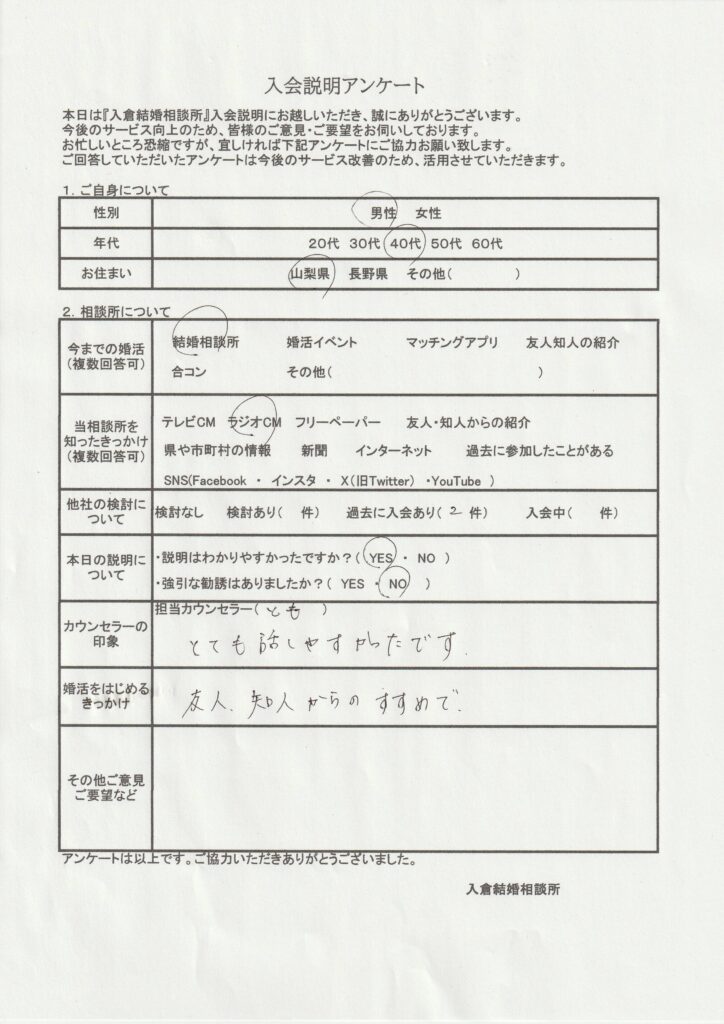 入会説明アンケート
本日は『入倉結婚相談所』入会説明にお越しいただき、誠にありがとうございます。
今後のサービス向上のため、皆様のご意見・ご要望をお伺いしております。
お忙しいところ恐縮ですが、宜しければ下記アンケートにご協力お願い致します。
ご回答していただいたアンケートは今後のサービス改善のため、活用させていただきます。
1. ご自身について
性別 男性 女性
年代 20代 30代 40代 50代 60代
お住まい 山梨県 長野県 その他( )
2. 相談所について
今までの婚活
(複数回答可)
結婚相談所 婚活イベント マッチングアプリ 友人知人の紹介
合コン その他( )
当相談所を
知ったきっかけ
(複数回答可)
テレビCM ラジオCM フリーペーパー 友人・知人からの紹介
県や市町村の情報 新聞 インターネット 過去に参加したことがある
SNS(Facebook ・ インスタ ・ X(旧Twitter) ・YouTube )
他社の検討に
ついて
検討なし 検討あり( 件) 過去に入会あり( 2 件) 入会中( 件)
本日の説明に
ついて
・説明はわかりやすかったですか?( YES ・ NO )
・強引な勧誘はありましたか?( YES ・ NO )
カウンセラーの
印象
担当カウンセラー( とも )
とても話しやすかったです.
婚活をはじめる
きっかけ
友人.知人からのすすめで.
その他ご意見
ご要望など
アンケートは以上です。ご協力いただきありがとうございました。
入倉結婚相談所